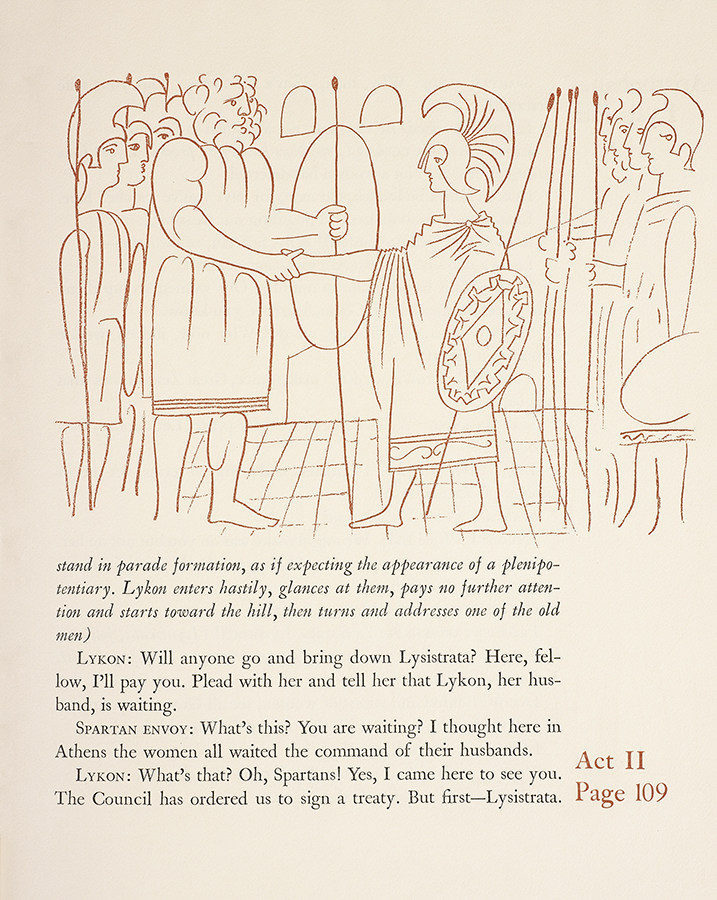 stand in parade formation, as if expecting the appearance of a plenipo-
tentiary. Lykon enters hastily, glances at them, pays no further atten-
tion and starts toward the hill, then turns and addresses one of the old
men)
LYKON: Will anyone go and bring down Lysistrata? Here, fel-
low, I'll pay you. Plead with her and tell her that Lykon, her hus-
band, is waiting.
SPARTAN ENVOY: What's this? You are waiting? I thought here in
Athens the women all waited the command of their husbands.
LYKON: What's that? Oh, Spartans! Yes, I came here to see you.
The Council has ordered us to sign a treaty. But first—Lysistrata.
Act II
Page 109